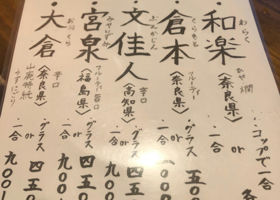 ・和楽
わらく
冷や 燗
〈奈良県〉
・コップで一合
・倉本
くらもと
フルーティー
〈奈良県〉
・グラス 四五
or
一合 九〇〇
・文佳人
ぶんかじん
辛口
〈高知県〉
・グラス 四五〇
or
一合 九〇〇
・宮泉
みやいずみ
フルーティ 旨口
〈福島県〉
・グラス 四五〇
or
一合 九〇〇
・大倉
おおくら
辛口
〈奈良県〉
山廃特純
うすにごり
・グラス 四五〇
or
一合 九〇〇